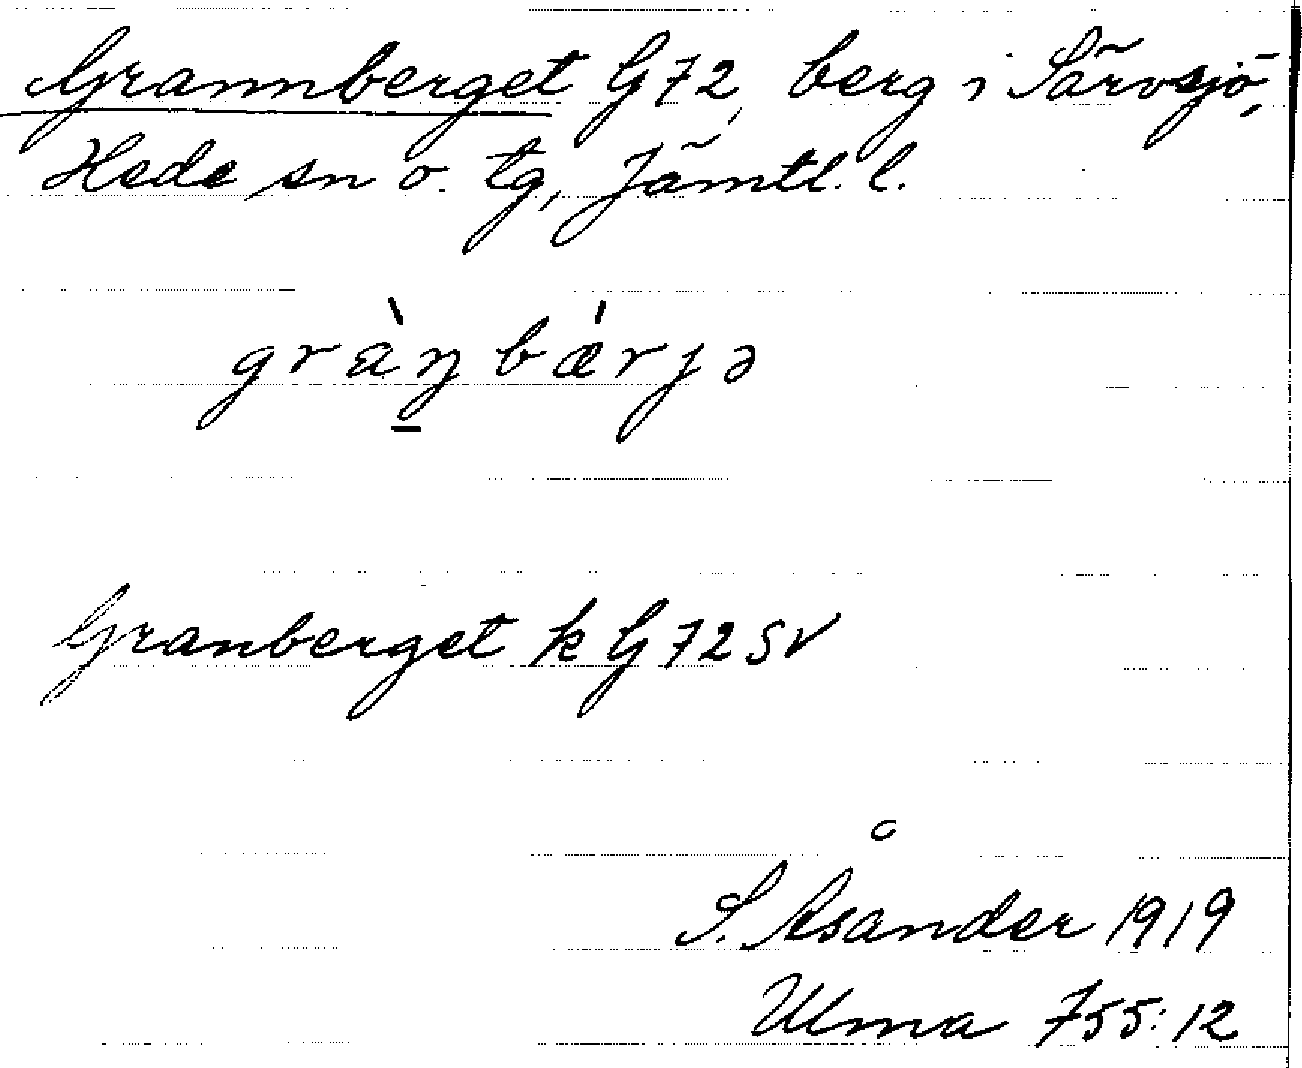 Grannberget G72, berg i Särvsjö,
Hede sn o. tg, Jämtl. l.
gràŋ̱bǽrjə
Granberget k G72SV
S. Åsander 1919
Ulma 755:12